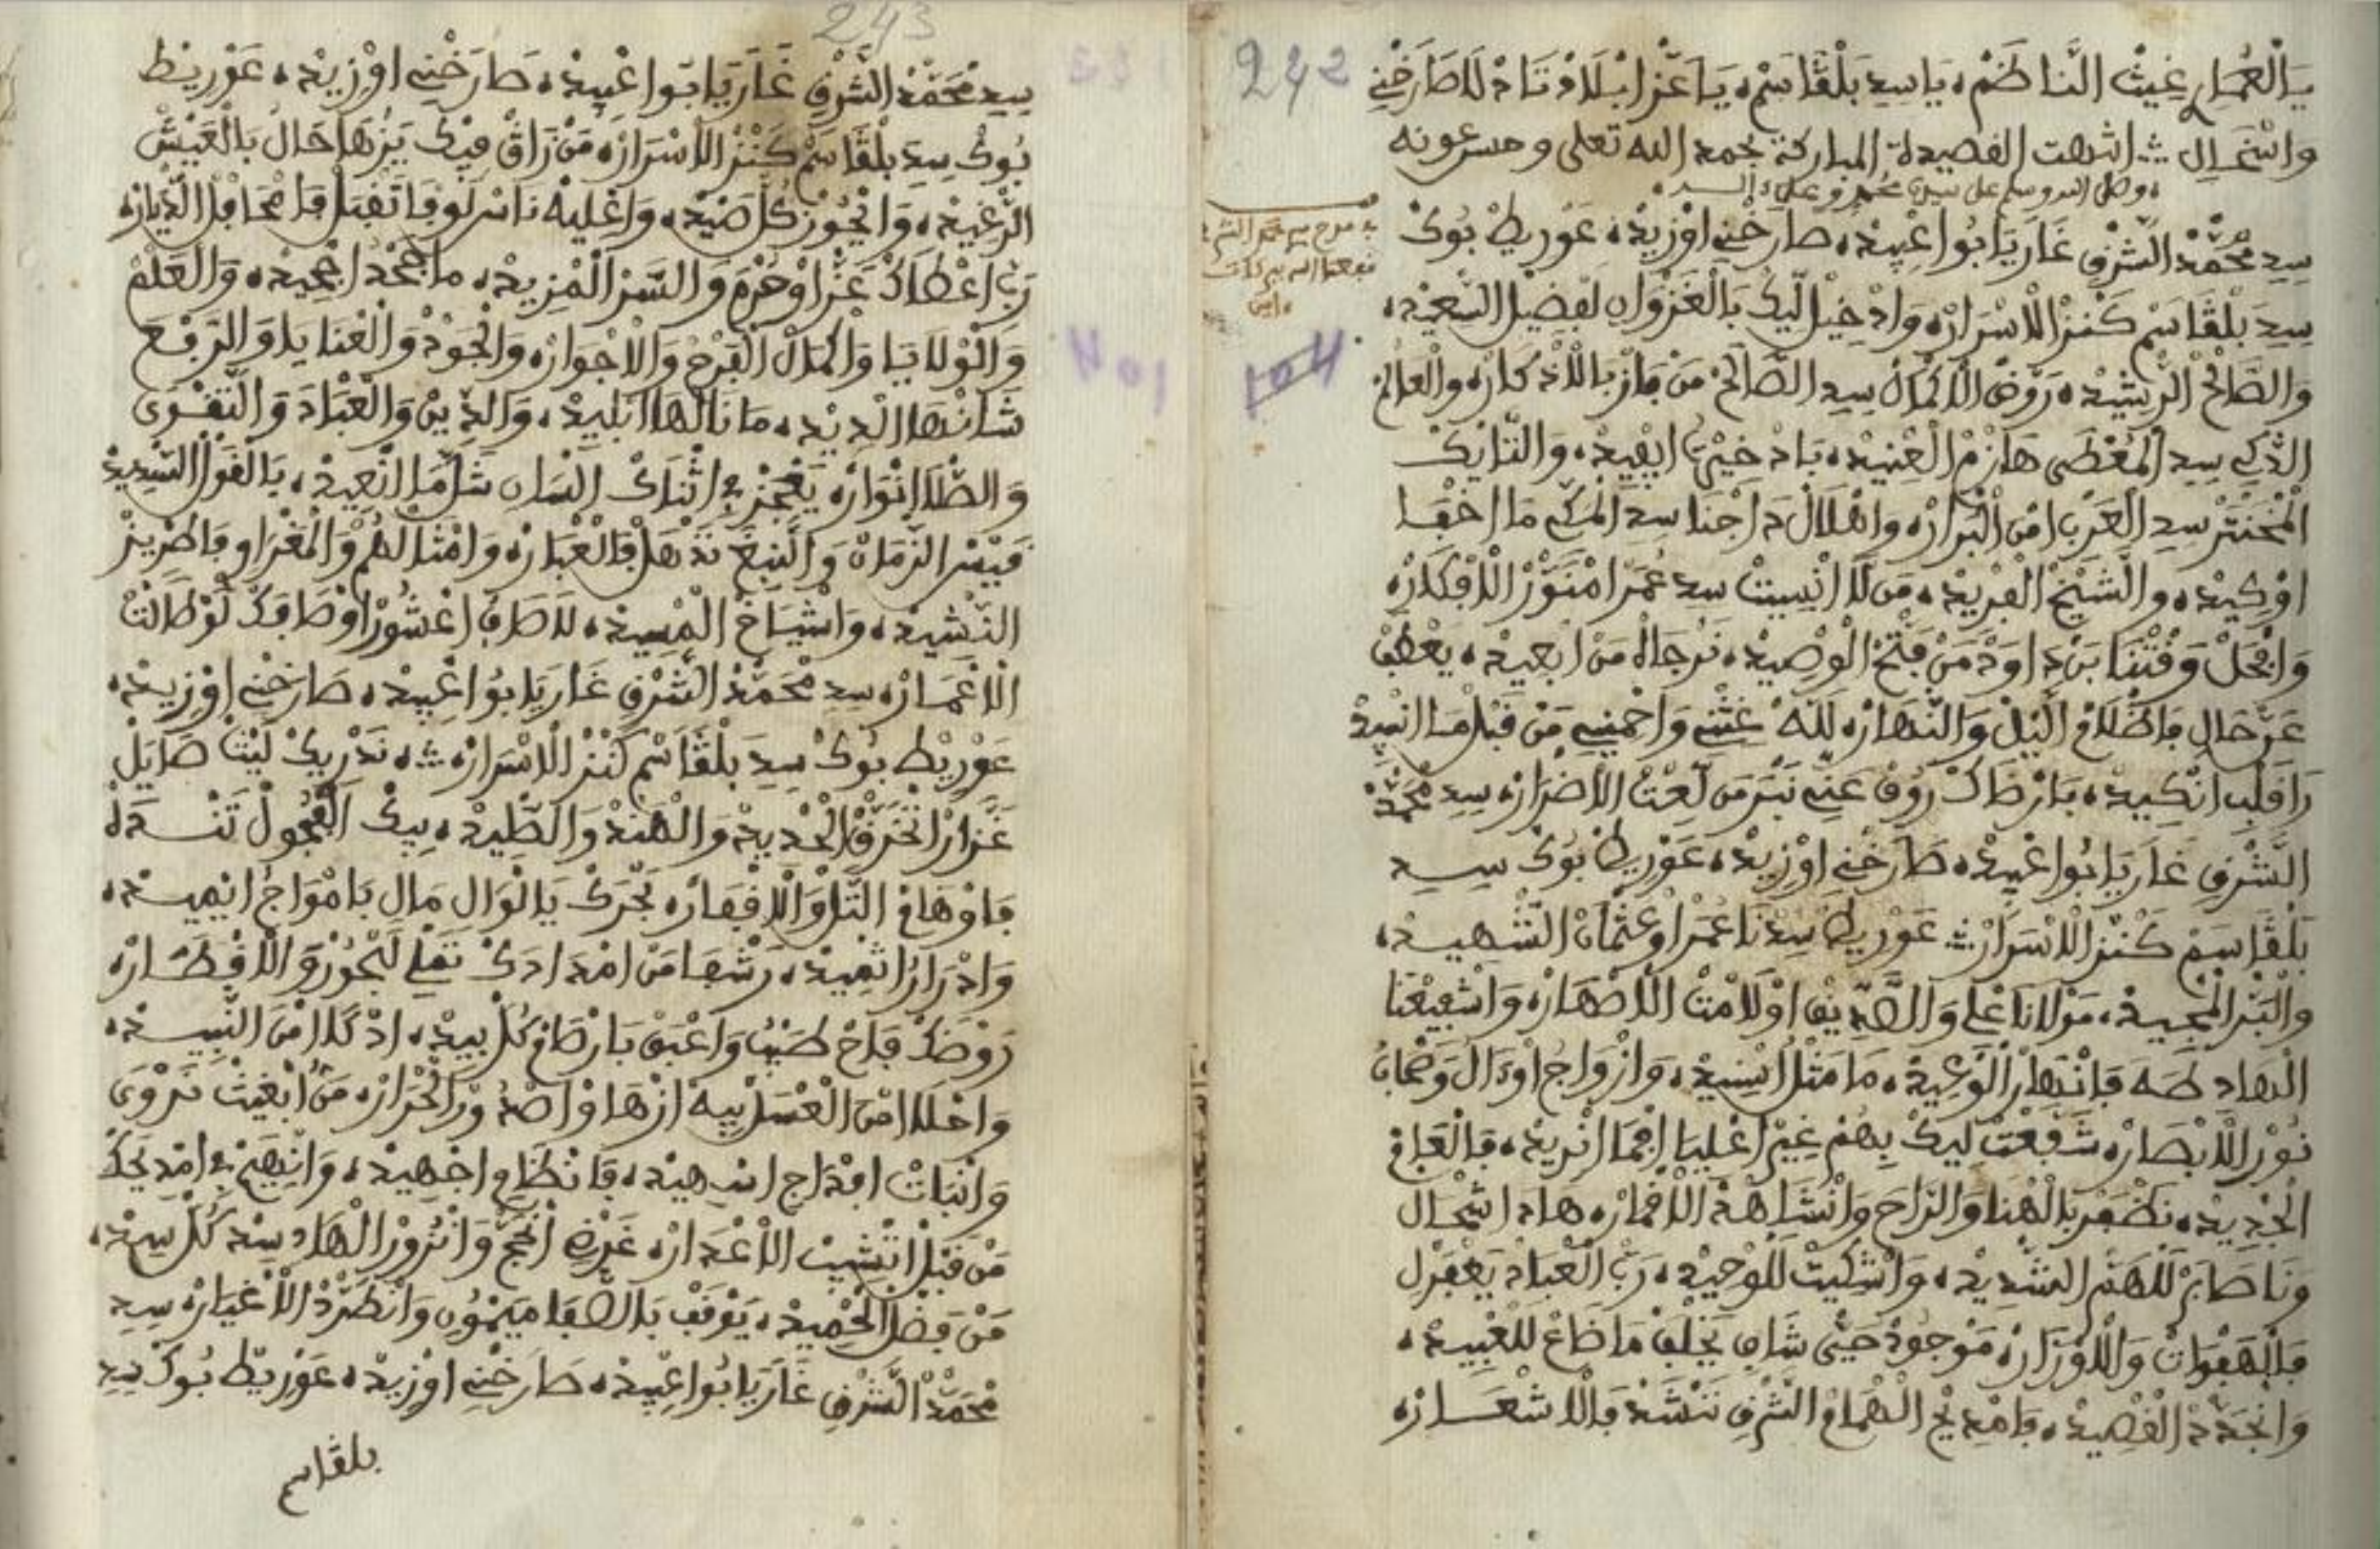 242
يَا الْعُمَارِ غِيثْ النَّاظَمْ، يَا سِيدِ بَلْڨَاسَمْ، يَا عَزْ ابْلَادْ تَادْلَا صَارَخْنِي
وانتحال ؞ انتهت الفصيدة المباركة بحمد الله تعلى وحسن عونه
وصلى الله وسلم على سيدنا محمد وعلى ءاله
سِيدِ مْحَمَّدْ الشَّرْفِي غَارَ يَا بُوا عْبِيدْ، صَارَخْنِي اوْزِيدْ، عَوْرِيطْ بُوكْ
سِيدِ بَلْڨَاسَمْ كَنْزْ الَاسْرَارْ، وَادْخِيلْ لِيكْ بَالْغَزْوَانِي لَفْضِيلْ السَّعِيدْ،
وَالصَّالَحْ الرَّشِيدْ، رَوْضْ الَاكْمَالْ سِيدِ الصَّالَحْ مَنْ فَازْ بَالَاذْكَارْ، وَالْعَالَمْ
الذّكِي سِيدِ الْمُعْطَى هَازَمْ الْعْنِيدْ، يَا دْخِيرْتِي ابْفِيدْ، وَالنَّايَكْ
الْمْخَنْتَرْ سِيدِ الْعَرْبِي امْنْ الْبْرَارْ، وَاهْلَالْ دَاجْنَا سِيدِ الْمَكِّي مَا اخْفَا
اوْكِيدْ، وَالشَّيْخْ الْفْرِيدْ، مَنْ لَا انْسِيتْ سِيدِ عُمَرْ امْنَوَّرْ الَافْكَارْ،
وَافْحَلْ وَقْتْنَا بَنْ دَاوَدْ مَنْ فْتَحْ الْوْصِيدْ، نَرْجَاهْ مَنْ ابْعِيدْ، يَعْطَفْ
عَنْ حَالِي فَاظْلَامْ الْلِيلْ وَالنّْهَارْ، لَلَّهْ غَثْنِي وَاحْمِينِي مَنْ قْبَلْ مَا انْبِيدْ
رَا قَلْبِي انْكِيدْ، بَارْضَاكْ رُوفْ عَنِّي نَبْرَ مَنْ لَعْتْ الَاضْرَارْ، سِيدِ مْحَمَّدْ
الشَّرْفِي غَارَ يَا بُوا عْبِيدْ، صَارَخْنِي اوْزِيدْ، عَوْرِيطْ بُوكْ سِيدِ
بَلْڨَاسَمْ كَنْزْ الَاسْرَارْ ؞ عَوْرِيطْ سِيدْنَا عُمَرْ اوْعُثْمَانْ الشّْهِيدْ،
وَالْبَرْ الْمْجِيدْ، مَوْلَانَا عْلِي وَالصّْدِيقْ اوْلَامْتْ الَاصْهَارْ، وَاشْفِيعْنَا
الْهَادِي طَهَ فَانْتْهَارْ الْوْعِيدْ، مَا مَثْلُ اسِيدْ، وَازْوَاجُ اوْءَالُ وَصْحَابُ
نُورْ الَابْصَارْ، شَفَّعْتْ لِيكْ بِهُمْ غِيرْ اعْلِيَا افْمَا انْرِيدْ، فَالْعَامْ
الْجْدِيدْ، نَظْفَرْ بَالْهْنَا وَالرَّاحَ وَانْشَاهَدْ الَاقْمَارْ، هَادَا شْحَالْ
وَنَا صَابَرْ لَلْهَمْ الشّْدِيدْ، وَاشْكِيتْ لَلْوْحِيدْ، رَبْ الْعْبَادْ يَغْفَرْ لِي
فَالْهَفْوَاتْ وَالَاوْزَارْ، مَوْجُودْ حَيْ شَانِ يَخْلَفْ مَا ضَاعْ لَلْعْبِيدْ،
وَانْجَدَّدْ الْقْصِيدْ، فَامْدِيحْ الْهْمَامْ الشَّرْفِي نَنْشَدْ فَالَاشْعَارْ،
243
سِيدِ مْحَمَّدْ الشَّرْفِي غَارَ يَا بُوا عْبِيدْ، صَارَخْنِي اوْزِيدْ، عَوْرِيطْ
بُوكْ سِيدِ بَلْڨَاسَمْ كَنْزْ الَاسْرَارْ، مَنْ زَاڨْ فِيكْ يَزْهَا حَالُ بَالْعَيْشْ
الرّْغِيدْ، وَانْحُوزْ كُلْ صَيْدْ، وَاعْلِيهْ نَاسْ لَوْفَا تَقْبَلْ فَامْحَافَلْ الدّْيَارْ،
رَبِّي اعْطَاكْ عَزْ اوْحُرْمَ وَالسَّرْ الْمْزِيدْ، مَا جَحْدُ اجْحِيدْ، وَالْعَلْمْ
وَالْوْلَايَا وَاكْمَالْ الْفَرْحْ وَالَاجْوَارْ، وَالْجُودْ وَالْعْنَايَا وَالرَّفْعَ
شَانْهَا الْدِيدْ، مَا نَالْهَا ابْلِيدْ، وَالدِّينْ وَالْعْبَادَ وَالتَّقْوَى
وَالطَّلَا انْوَارْ، يَعْجَزْ فِي اثْنَاكْ الْسَانِي شَلَّا مَا انْعِيدْ، يَالْقَوْلْ السّْدِيدْ
فَيْسْ الزّْمَانْ وَالنَّبْغَ تَدْهَلْ فَالْعْبَارْ، وَامْثَالْهُمْ وَالْمَغْرَاوِي فَاطْرِيزْ
النّْشِيدْ، وَاشْيَاخْ الْمْسِيدْ، لَاصَافْ اعْشُورْ اوْصَافَكْ لَوْ طَالَتْ
الَاعْمَارْ، سِيدِ مْحَمَّدْ الشَّرْفِي غَارَ يَا بُوا عْبِيدْ، صَارَخْنِي اوْزِيدْ،
عَوْرِيطْ بُوكْ سِيدِ بَلْڨَاسَمْ كَنْزْ الَاسْرَارْ، ؞ نَدْرِيكْ لَيْثْ صَايَلْ
غَزَارْ اتْخَرَّقْ الْحْدِيدْ وَالْهَنْدْ وَالظِّيدْ، بِيكْ الْفْحُولْ تَنْسَدَلْ
فَاوْهَامْ التَّلْ وَالَاقْفَارْ، بَحْرَكْ يَا الْوَالِي مَالِي بَامْوَاجُ انْهِيدْ،
وَادْرَارُ اتْفِيدْ، رَشْفَا مَنْ امْدَادَكْ تَمْلِي لَبْحُورْ وَالَاقْطَارْ،
رَوْضَكْ فَاحْ طَيْبُ وَاعْبَقْ بَارْضَامْ كُلْ بِيدْ، اذْكَا امْنَ النّْبِيدْ،
وَاحْلَا امْنَ الْعْسَلْ بِيهْ ازْهَاوْ اصْدُورْ الْحْرَارْ، مَنُّ ابْغِيتْ نَرْوَى
وَانْبَاتْ افْدَاجِي انْدْهِيدْ، فَانْظَامِي اجْهِيدْ، وَانْهِيَّمْ فِي امْدِيحَكْ
مَنْ قْبَلْ انْشِيبْ الَاعْدَارْ، غَرْضِي انْحَجْ وَانْزُورْ الْهَادِي سِيدْ كُلْ سِيدْ،
مَنْ فَضْلْ الْحْمِيدْ، يَوْقَفْ بَالصّْفَا مَيْمُونِي وَانْطَرَّدْ الَاغْيَارْ، سِيدِ
مْحَمَّدْ الشَّرْفِي غَارَ يَا بُوا عْبِيدْ، صَارَخْنِي اوْزِيدْ، عَوْرِيطْ بُوكْ سِيدِ
بلڨاسم